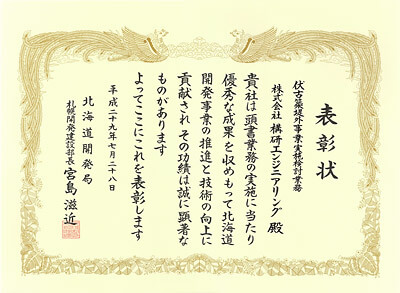 表彰状
伏古築堤外事業実施検討業務
株式会社 構研エンジニアリング 殿
貴社は頭書業務の実施に当たり
優秀な成果を収めもって北海道
開発事業の推進と技術の向上に
貢献されその功績は誠に顕著な
ものがあります
よってここにこれを表彰します
平成二十九年七月二十八日
北海道開発局
札幌開発建設部長 宮島滋近